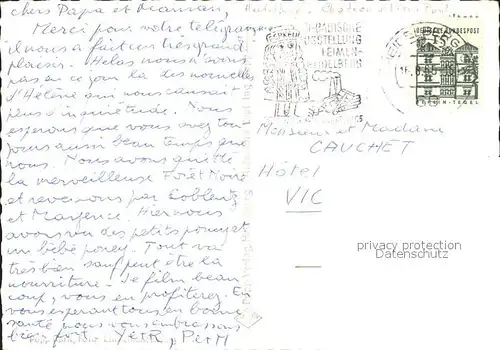 chers Papa et Maman,
Merci pour votre télégramme
il nous a fait un très grand
plaisir. Hélas nous n'avons
pas eu ce jour là les nouvelles
d'Hélène qui nous causait
plus d'inquiétude. Nous
espérons que vous avez tou-
jours aussi beau temps que
nous. Nous avons quitté
la merveilleuse Forêt Noire
et revenons par Coblentz
et Mayence. Hier nous
avons vu des petits poneys et
un bébé poney. Tout va
très bien sauf peut être la
nourriture. Je film beau
coup, vous en profiterez. En
vous espérant tous en bonne
santé nous vous embrassons
bien fort Y et R, P et M
BADISCHE
AUSSTELLUNG
HEIDELBERG
DEUTSCHE BUNDESPOST
15
BERLIN-TEGEL
Monsieur et Madame
CAUCHET
Hôtel
VIC
privacy protection
Datenschutz